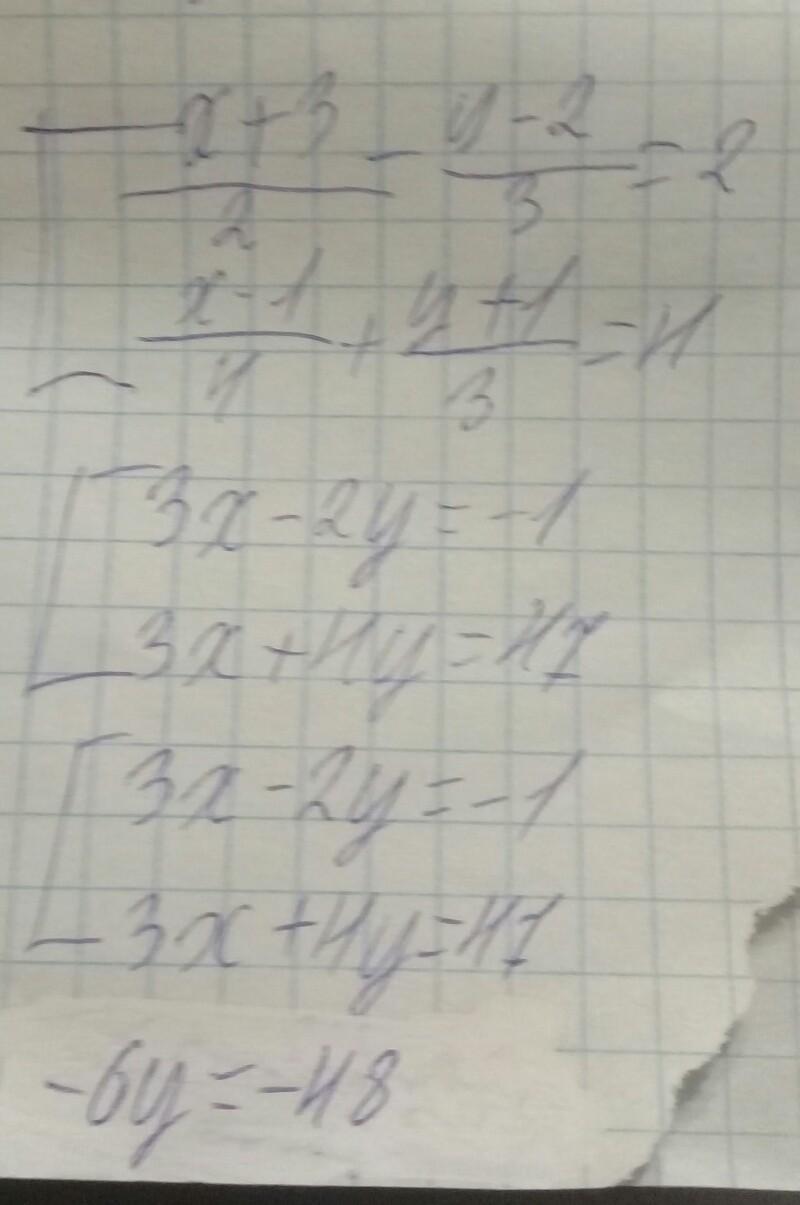 (x+3)/2 - (y-2)/3 = 2
(x-1)/4 + (y+1)/3 = 4
3x-2y=-1
3x+4y=47
3x-2y=-1
3x+4y=47
-6y=-48